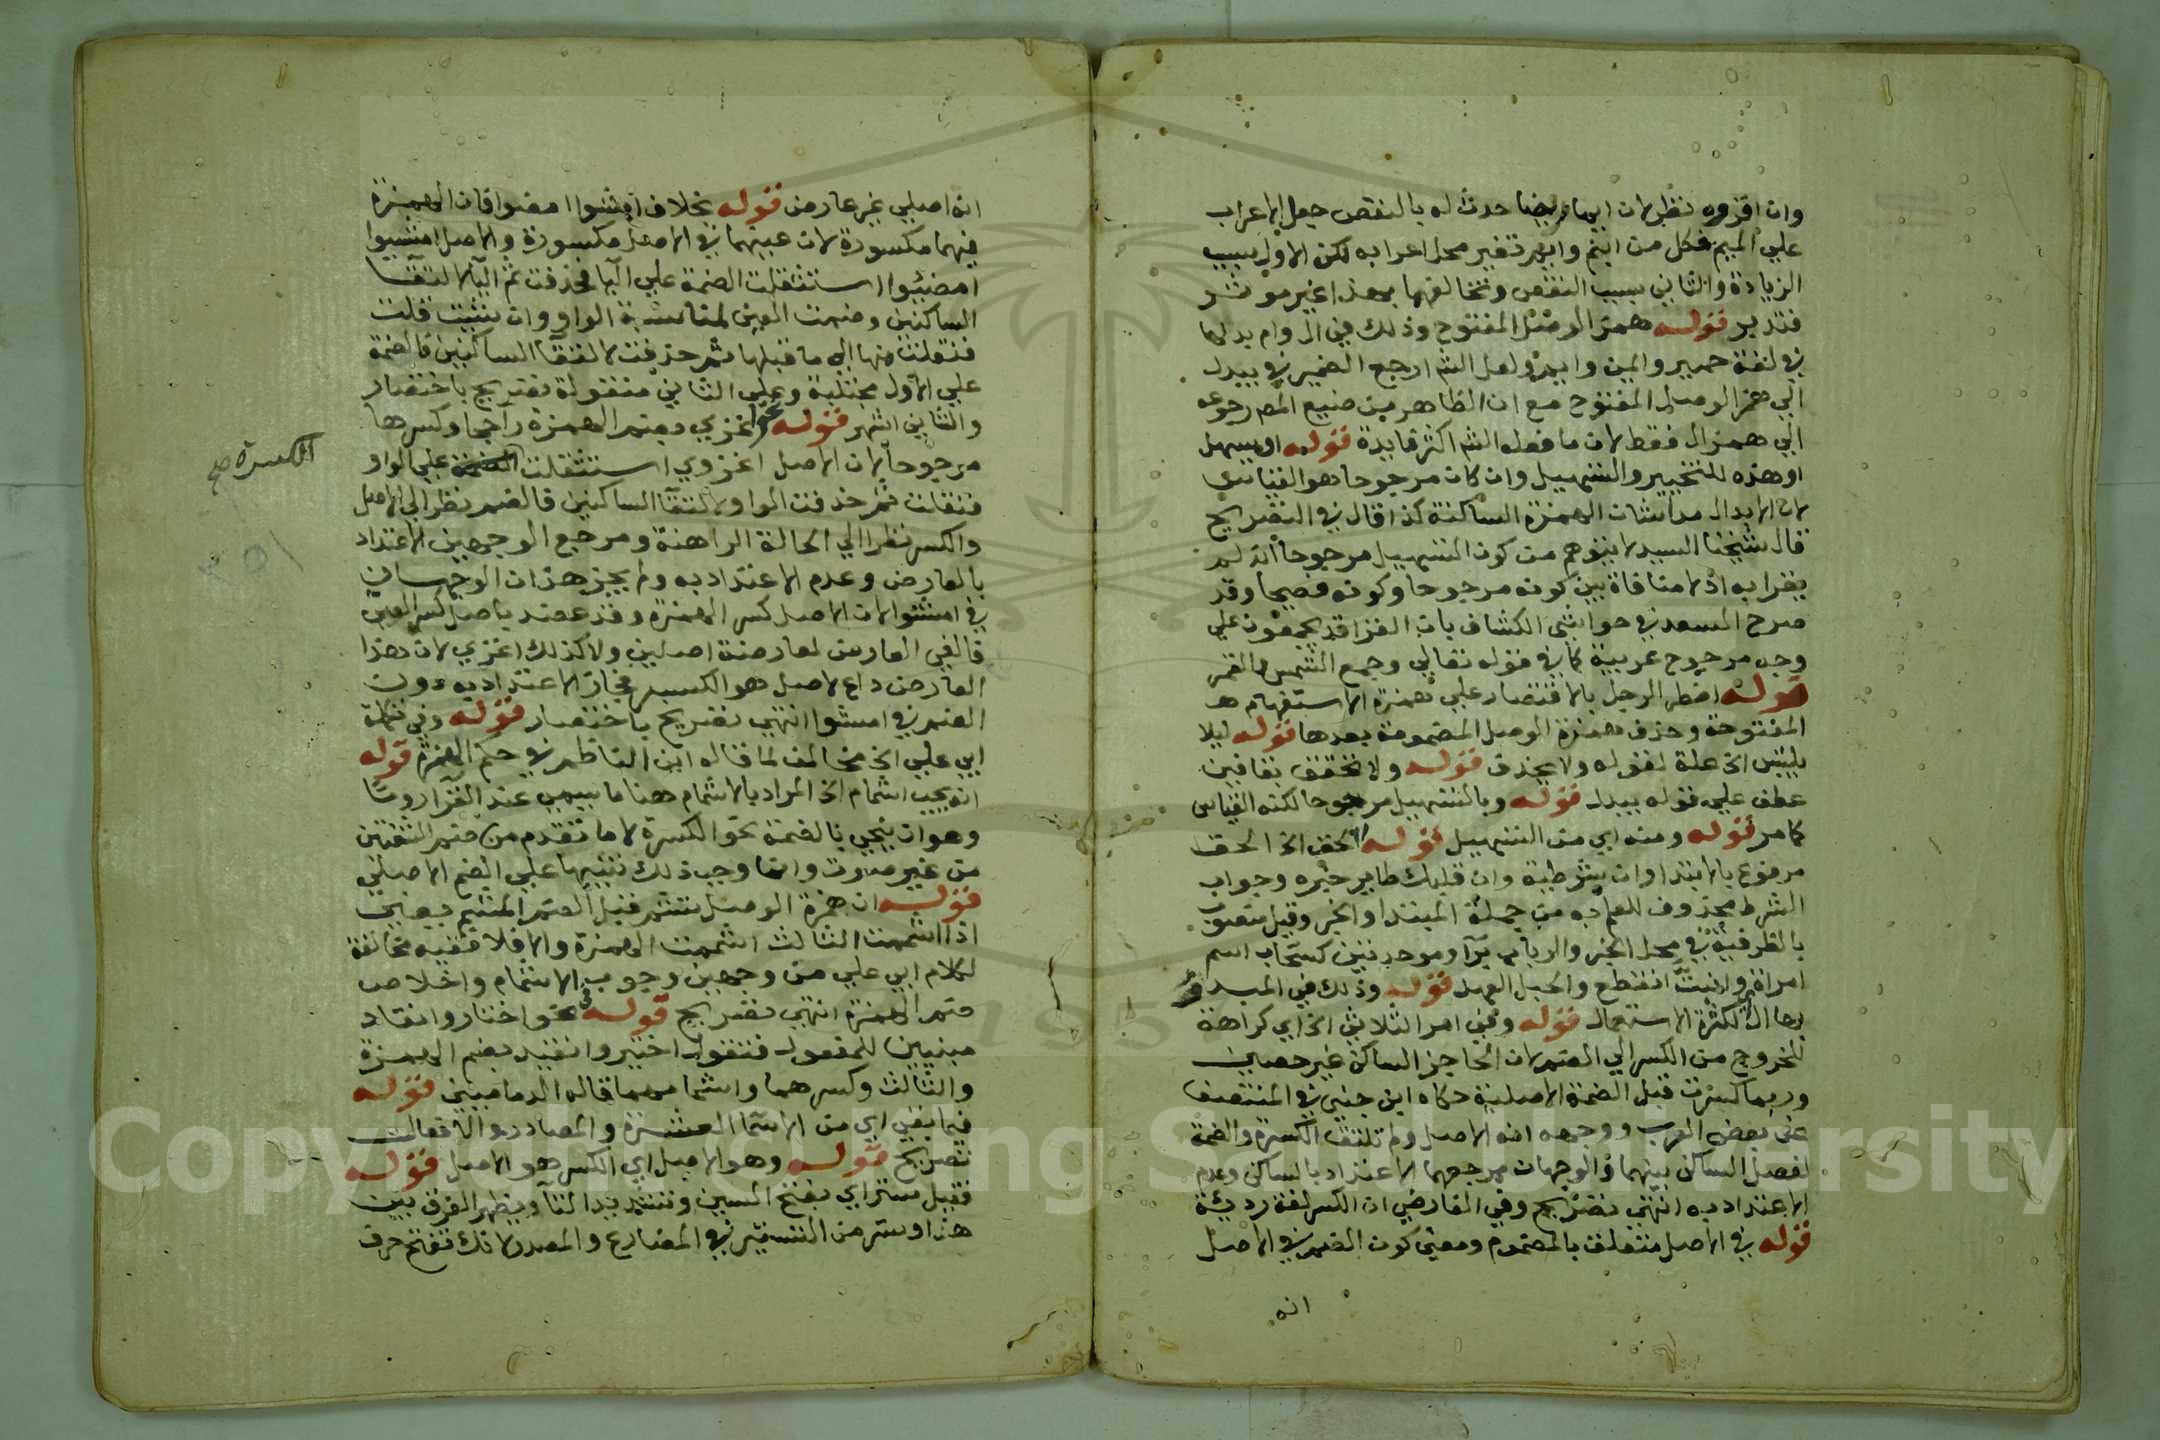 وان اقروه نظر لان ايما ايضا حدث له بالنقص جعل الاعراب
علي الميم فكل من ابنم وايم تغير محل اعرابه لكن الاول بسبب
الزيادة والثاني بسبب النقص وتخالفهما بهذا غير موثر
فتدبر قوله همز الوصل المفتوح وذلك في ال وام بدلها
في لغة حمير وايمن وايم ولعل الشم ارجع الضمير في يبدل
الي همز الوصل المفتوح مع ان الظاهر من صنيع المص رجوعه
الي همز ال فقط لان ما فعله الشم اكثر فايدة قوله او يسهل
او هذه للتخيير والتسهيل وان كان مرجوحا هو القياس
لان الابدال من شان الهمزة الساكنة كذا قال في التصريح
قال شيخنا السيد لا يتوهم من كون التسهيل مرجوحا انه لم
يقرا به اذ لا منافاة بين كونه مرجوحا وكونه فصيحا وقد
صرح السعد في حواشي الكشاف بان القرا قد يجمعون علي
وجه مرجوح عربية كما في قوله تعالي وجمع الشمس والقمر
قوله اضطر الرجل بالاقتصار علي همزة الاستفهام
المفتوحة وحذف همزة الوصل المضمومة بعدها قوله ليلا
يلتبس الخ علة لقوله ولا يحذف قوله ولا تحقق بقافين
عطف علي قوله يبدل قوله وبالتسهيل مرجوحا لكنه القياس
كما مر قوله ومنه اي من التسهيل قوله االحق الخ الحق
مرفوع بالابتدا وان شرطية وان قلبك طاير خبره وجواب
الشرط محذوف للعلم به من جملة المبتدا والخبر وقيل منصوب
بالظرفية في محل الخبر والرباب برآ وموحدتين كسحاب اسم
امراة وانبتّ انقطع والحبل العهد قوله وذلك في المبدو
بها ال لكثرة الاستعمال قوله وفي امر الثلاثي الخ اي كراهة
للخروج من الكسر الي الضم لان الحاجز الساكن غير حصين
وربما كسرت قبل الضمة الاصلية حكاه ابن جني في المنصف
عن بعض العرب ووجهه انه الاصل ولم تلتق الكسرة والضمة
لفصل الساكن بينهما والوجهان مرجعهما الاعتداد بالساكن وعدم
الاعتداد به انتهي تصريح وفي الفارضي ان الكسر لغة رديئة
قوله في الاصل متعلق بالمضموم ومعني كون الضم في الاصل
انه
انه اصلي غير عارض قوله بخلاف امشوا امضوا فان الهمزة
فيهما مكسورة لان عينهما في الاصل مكسورة والاصل امشيوا
امضيوا استثقلت الضمة علي اليآ فحذفت ثم اليآ لالتقآ
الساكنين وضمت العين لمناسبة الواو وان شئت قلت
فنقلت منها الي ما قبلها ثم حذفت لالتقآ الساكنين فالضمة
علي الاول مجتلبة وعلي الثاني منقولة تصريح باختصار
والثاني اشهر قوله نحو اغزي بضم الهمزة راجحا وكسرها
مرجوحا لان الاصل اغزوي استثقلت الضمة علي الواو
الكسرة صح
فنقلت ثم حذفت الواو لالتقآ الساكنين فالضم نظرا الي الاصل
والكسر نظرا الي الحالة الراهنة ومرجع الوجهين الاعتداد
بالعارض وعدم الاعتداد به ولم يجز هذان الوجهان
في امشوا لان الاصل كسر الهمزة وقد عضد باصل كسر العين
فالغي العارض لمعارضة اصلين ولا كذلك اغزي لان هذا
العارض داع لاصل هو الكسر فجاز الاعتداد به دون
الضم في امشوا انتهي تصريح باختصار قوله وفي تكملة
ابي علي الخ مخالف لما قاله ابن الناظم في حكم الهمزة قوله
انه يجب اشمام الخ المراد بالاشمام هنا ما يسمي عند القرآ روما
وهو ان ينحي بالضمة نحو الكسرة لا ما تقدم من ضم الشفتين
من غير صوت وانما وجب ذلك تنبيها علي الضم الاصلي
قوله ان همزة الوصل تشم قبل الضم المشم يعني
اذا اشممت الثالث اشممت الهمزة والا فلا ففيه مخالفة
لكلام ابي علي من وجهين وجوب الاشمام واخلاص
ضم الهمزة انتهي تصريح قوله في نحو اختار وانقاد
مبنيين للمفعول فتقول اختير وانقيد بضم الهمزة
والثالث وكسرهما واشمامهما قاله الدماميني قوله
فيما بقي اي من الاسما العشرة والمصادر والافعال
تصريح قوله وهو الاصل اي الكسر هو الاصل قوله
فقيل ستر اي بفتح السين وتشديد التآ ويظهر الفرق بين
هذا وستر من التستير في المضارع والمصدر لانك تفتح حرف
Copyright © King Saud University
1957